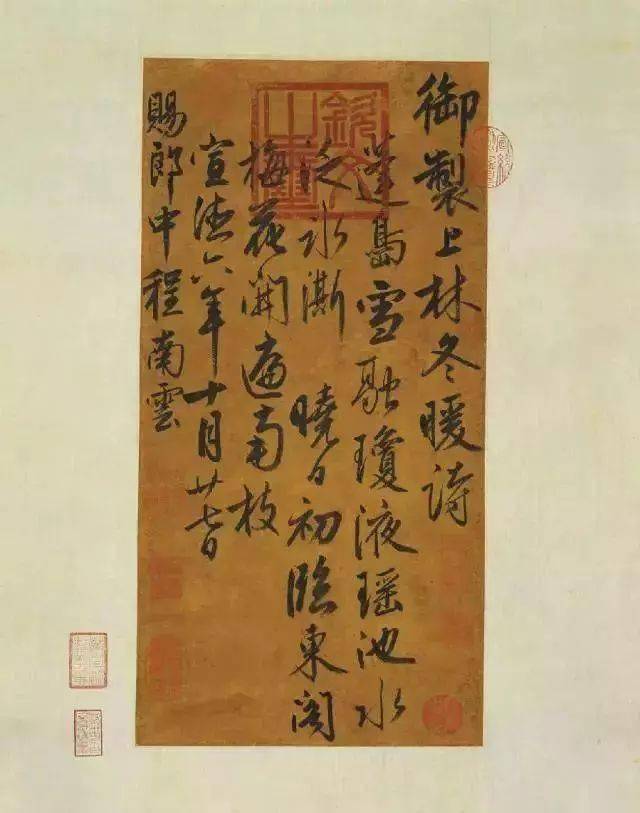 御製上林冬暖詩
蓬島雪融瓊液瑤池水
泛冰澌 曉日初臨東閣
梅花開遍南枝
宣德六年十月廿七日
賜郎中程南雲
欽文之璽